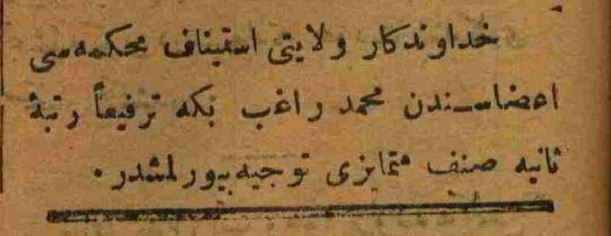 خداوندكار ولايتى استيناف محكمه‌سى
اعضاسندن محمد راغب بكه ترفيعاً رتبهٔ
ثانيه صنف متمايزى توجيه بيورلمشدر.